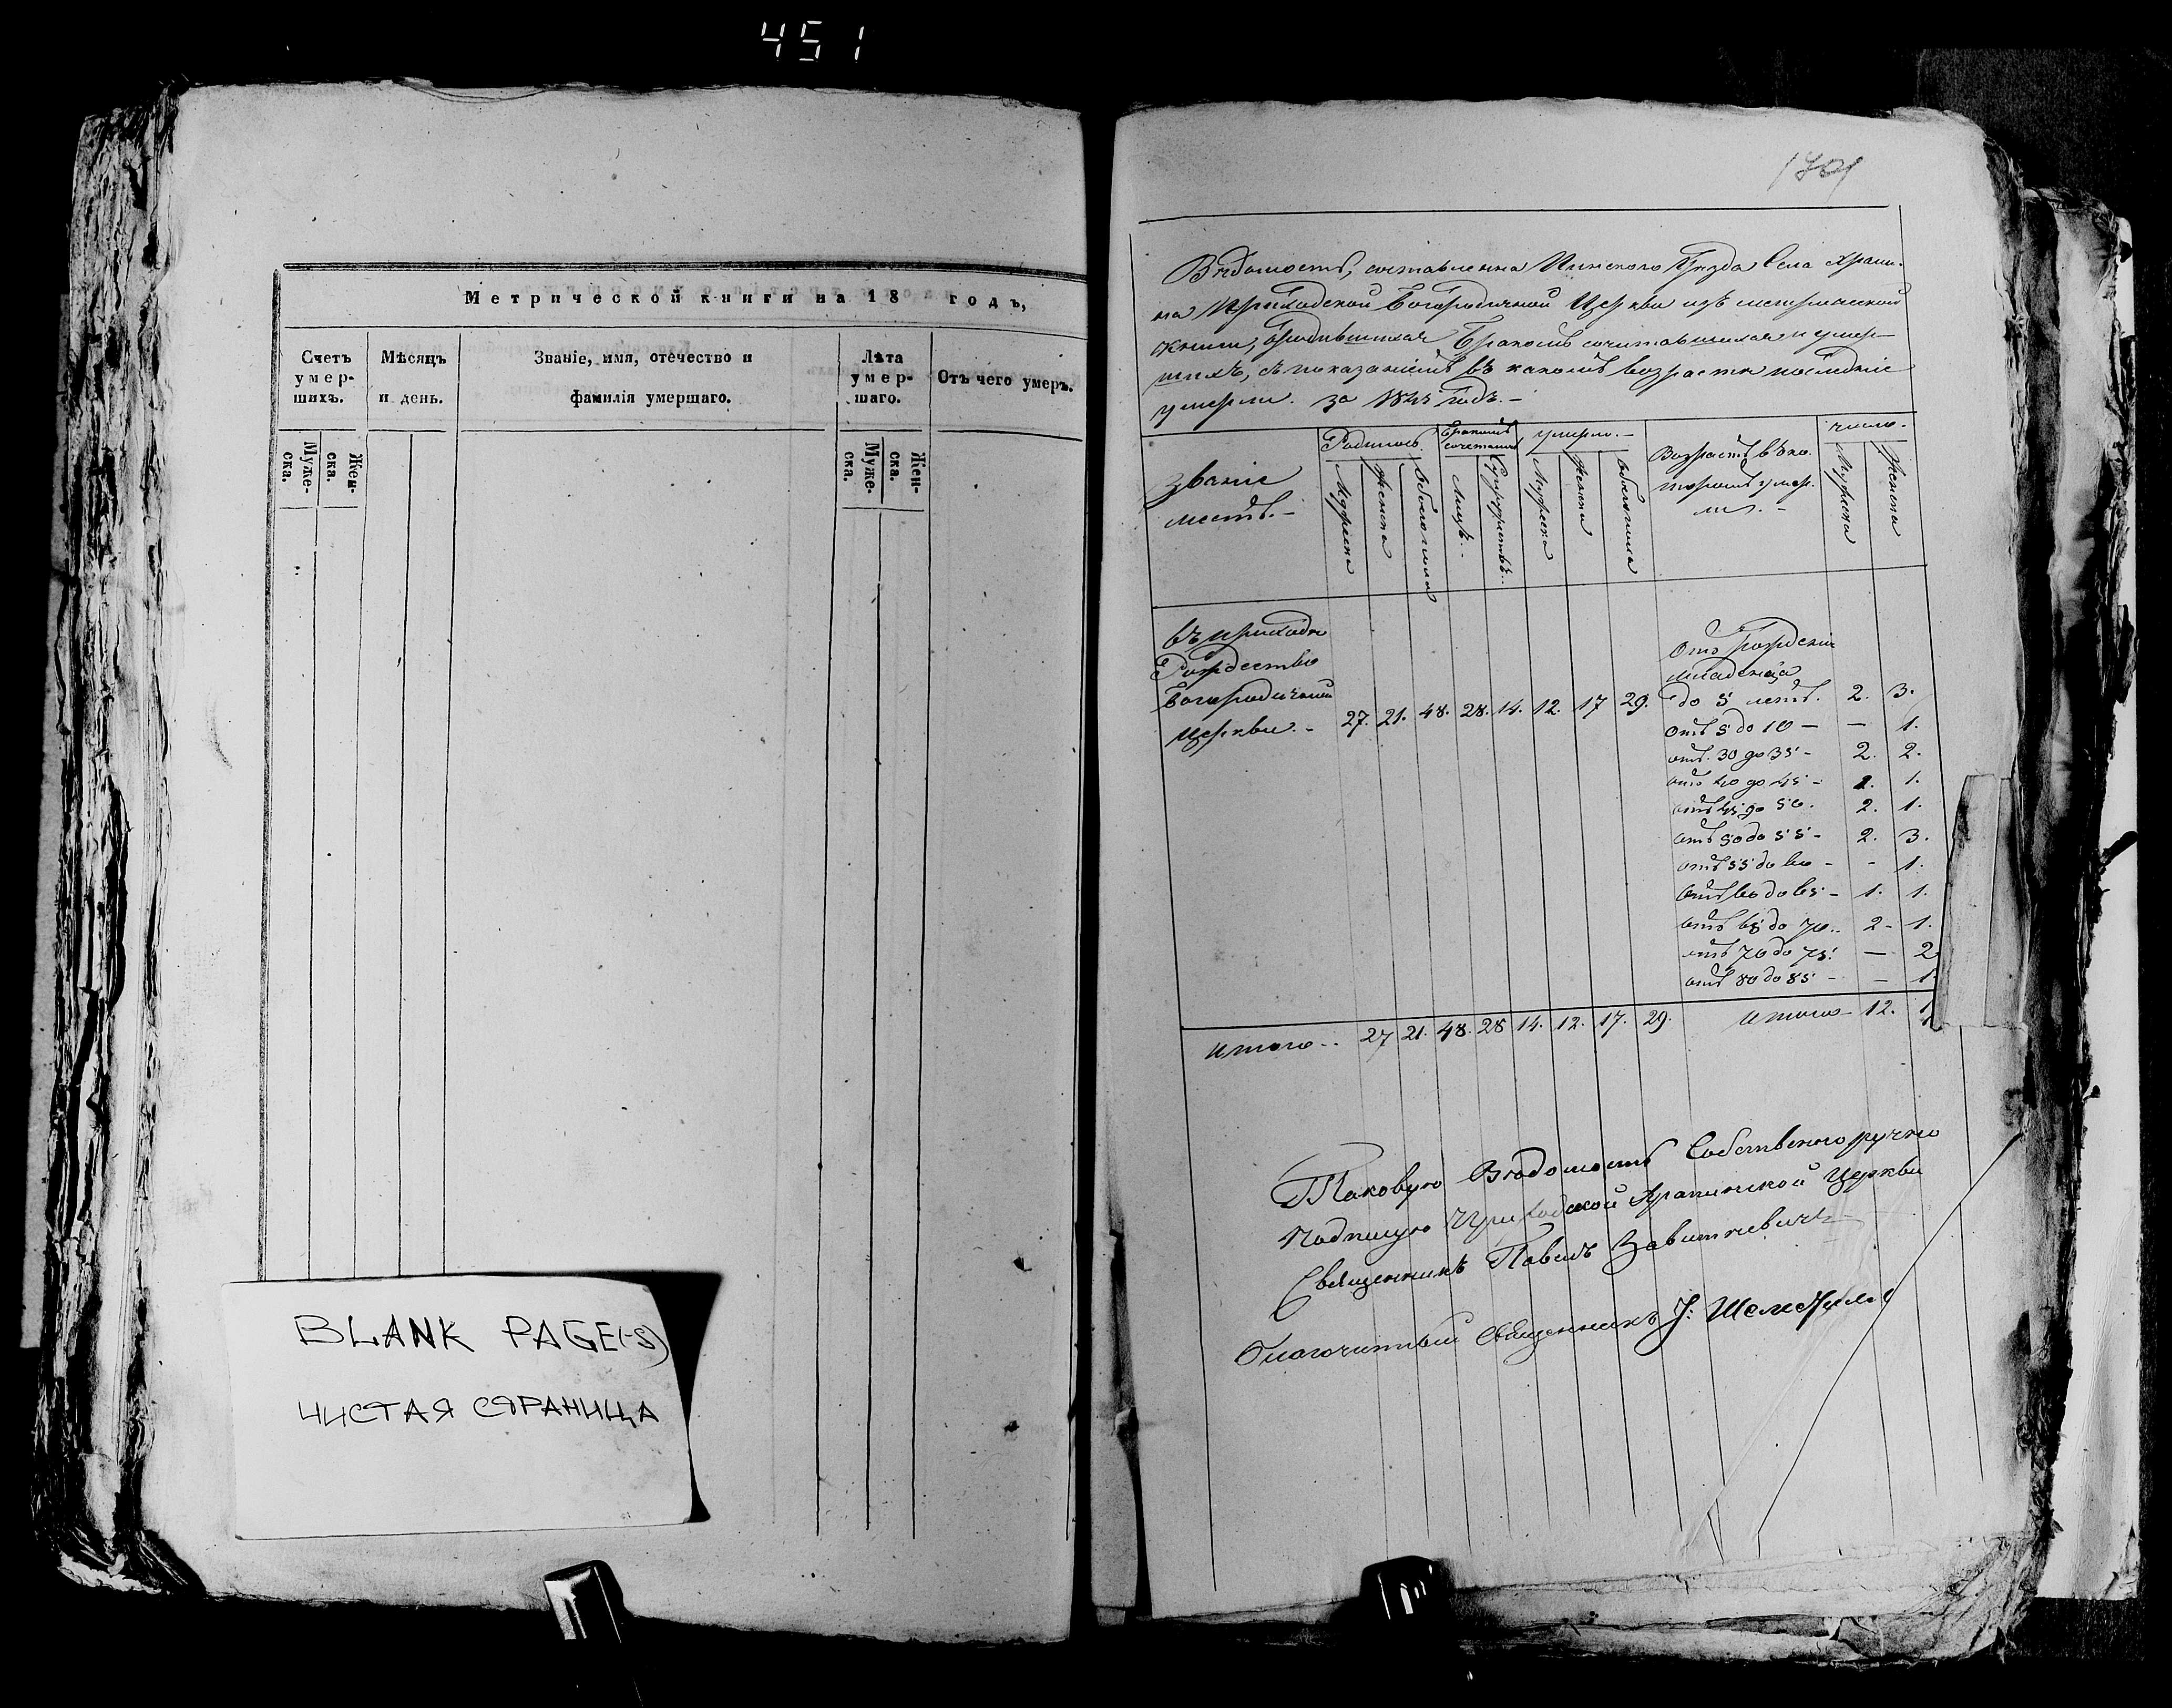 451
Метрической книги на 18 годъ,
Счетъ умер-шихъ.
Мѣсяцъ и день.
Званіе, имя, отечество и фамилія умершаго.
Лѣта умер-шаго.
Отъ чего умеръ.
Муже-ска.
Жен-ска.
Муже-ска.
Жен-ска.
BLANK PAGE(-S)
ЧИСТАЯ СТРАНИЦА
Вѣдомость, составленна Пинского Уезда Села Храпи-
на Приходской Богородичной Церкви изъ метрической
книги, о родившихся Бракомъ сочитавшихся и умер-
шихъ, съ показаніемъ въ какомъ возрасте последніе
умерли. за годъ.-
званіе
местъ.-
Родилось.
Бракомъ сочеталось
умерло.-
Возрастъ въ ко-
торомъ умер-
ли.-
число.
Мужска
Женска
обоего пола
Лицъ..
Супружествъ..
Мужска
Женска
обоего пола
Мужска
Женска
въ приходе
Рождество
Богородичной
Церкви.-
27. 21. 48. 28. 14. 12. 17 29.
Отъ рожденія
младенца
до 5 летъ. 2. 3.
отъ 5 до 10 - — 1.
отъ 30 до 35 - 2. 2.
отъ 40 до 45 - 1. 1.
отъ 45 до 50. 2. 1.
отъ 50 до 55 - 2. 3.
отъ 55 до 60 - - 1.
отъ 60 до 65 - 1. 1.
отъ 65 до 70.. 2- 1.
отъ 70 до 75. — 2
отъ 80 до 85 - - 1
итого.. 27 21. 48. 28 14. 12. 17. 29. итого 12. 1
Таковую Вѣдомость Собственоручно
подпишую Приходской Храпинской Церкви
Священникъ Павелъ Завитневичъ
Благочинный Священникъ